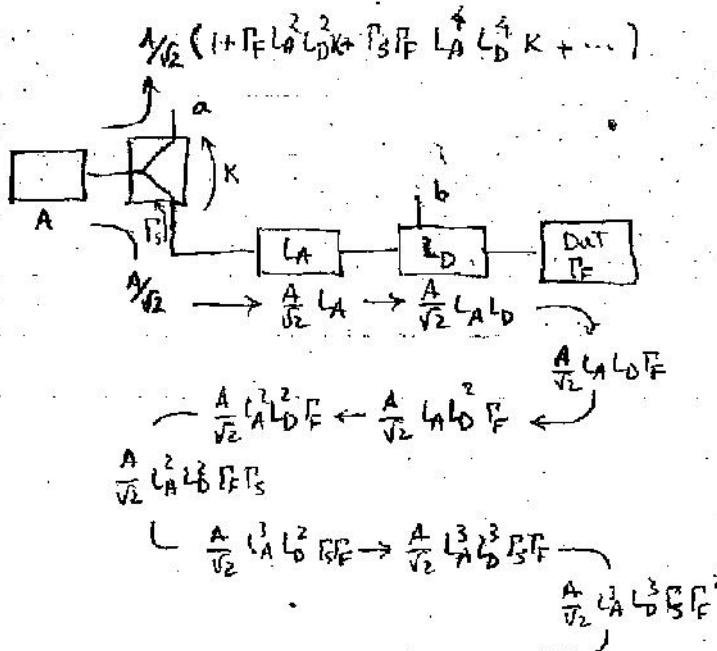 A/√2 (1 + Γ_F L_A^2 L_D^2 K + Γ_S Γ_F L_A^4 L_D^4 K + ⋯)
a
K
A
Γ_S
b
L_A
L_D
DUT
Γ_F
A/√2 → A/√2 L_A → A/√2 L_A L_D
A/√2 L_A L_D Γ_F
A/√2 L_A^2 L_D^2 Γ_F ← A/√2 L_A L_D^2 Γ_F
A/√2 L_A^2 L_D^2 Γ_F Γ_S
A/√2 L_A^3 L_D^2 Γ_S Γ_F → A/√2 L_A^3 L_D^3 Γ_S Γ_F
A/√2 L_A^3 L_D^3 Γ_S Γ_F^2